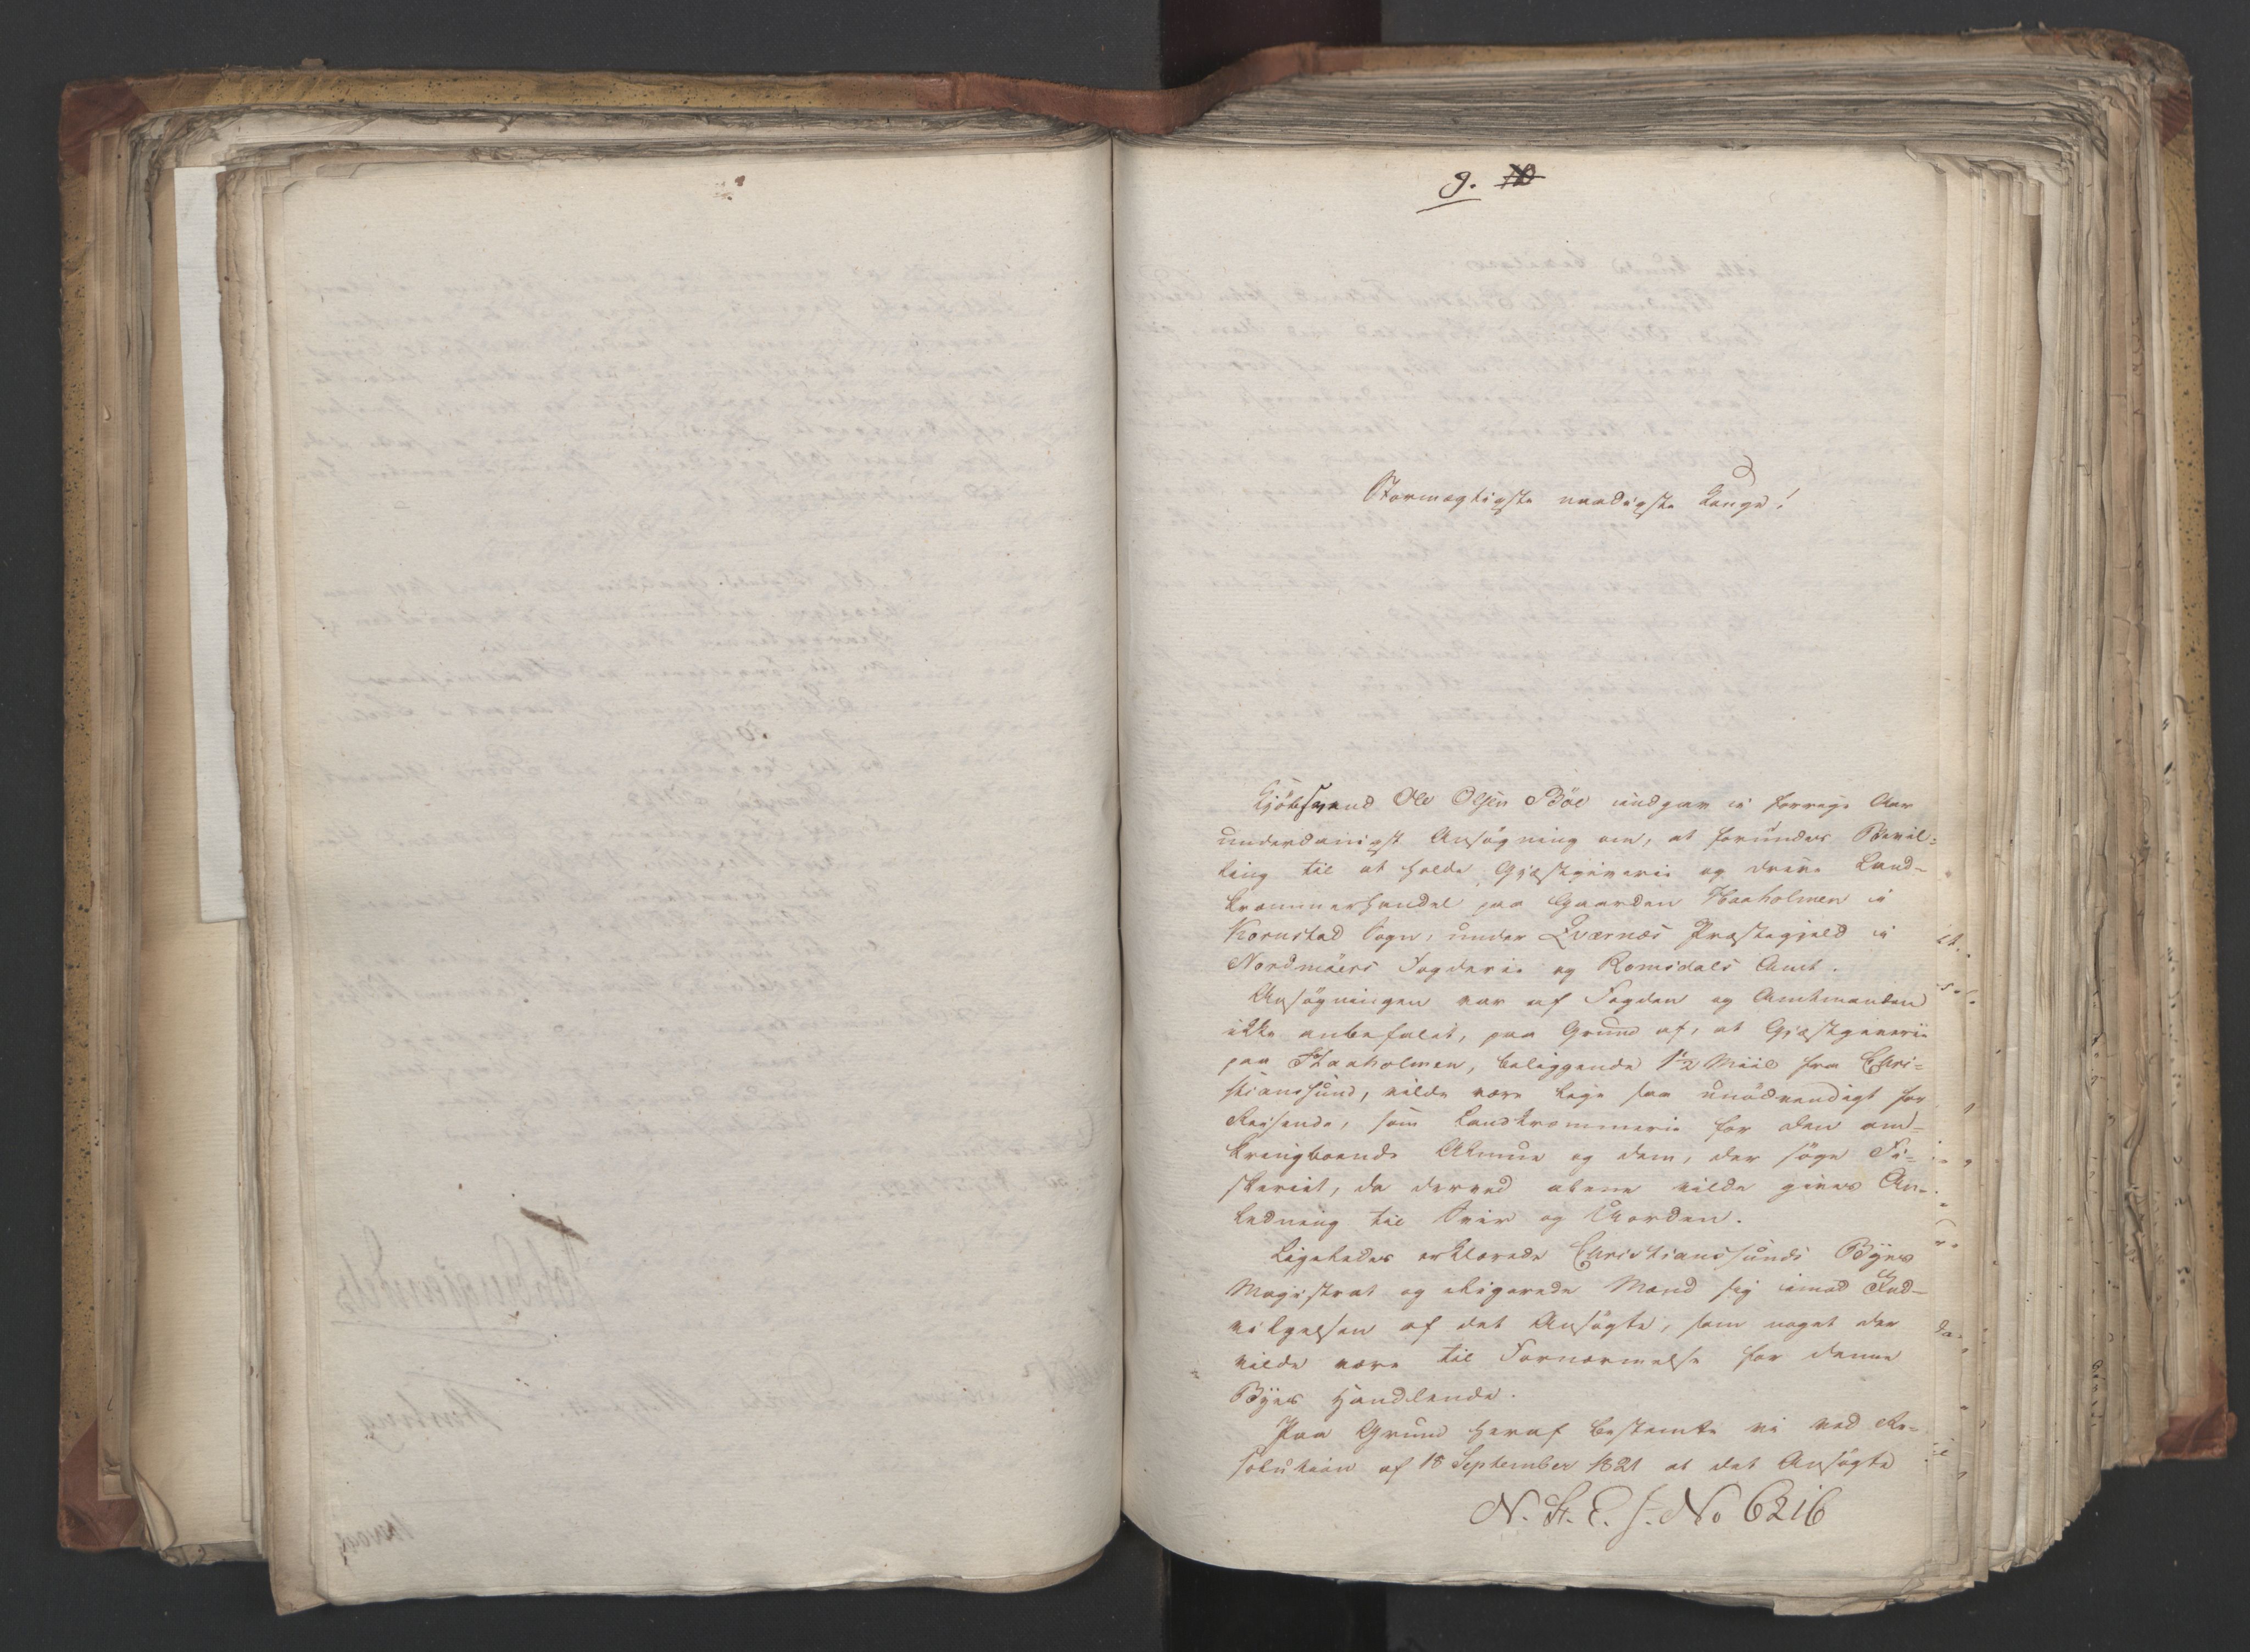 9.
Stormægtigste naadigste Konge!
Kjöbmand Ole Olsen Böe indgav i forrige Aar
underdanigst Ansögning om, at forundes Bevil-
ling til at holde Gjæstgiverie og drive Land-
kræmmerhandel paa Gaarden Haaholmen i
Kornstad Sogn, under Qværnæs Præstegjeld i
Nordmöers Fogderie og Romsdals Amt.
Ansögningen var af Fogden og Amtmanden
ikke anbefalet, paa Grund af, at Gjæstgiverie
paa Haaholmen, beliggende 1½ Miil fra Chri-
stianssund, vilde være lige saa unödvendigt for
Reisende, som Landkræmmerie for den om-
kringboende Almue og dem, der söge Fi-
skeriet, da derved alene vilde gives An-
ledning til Sviir og Uorden.
Ligeledes erklærede Christianssunds Byes
Magistrat og eligerede Mænd sig imod Ind-
vilgelsen af det Ansögte, som noget der
vilde være til Fornærmelse for denne
Byes Handlende.
Paa Grund heraf bestemte vi ved Re-
solution af 18 September 1821 at det Ansögte
N. St. E. J. No 6216